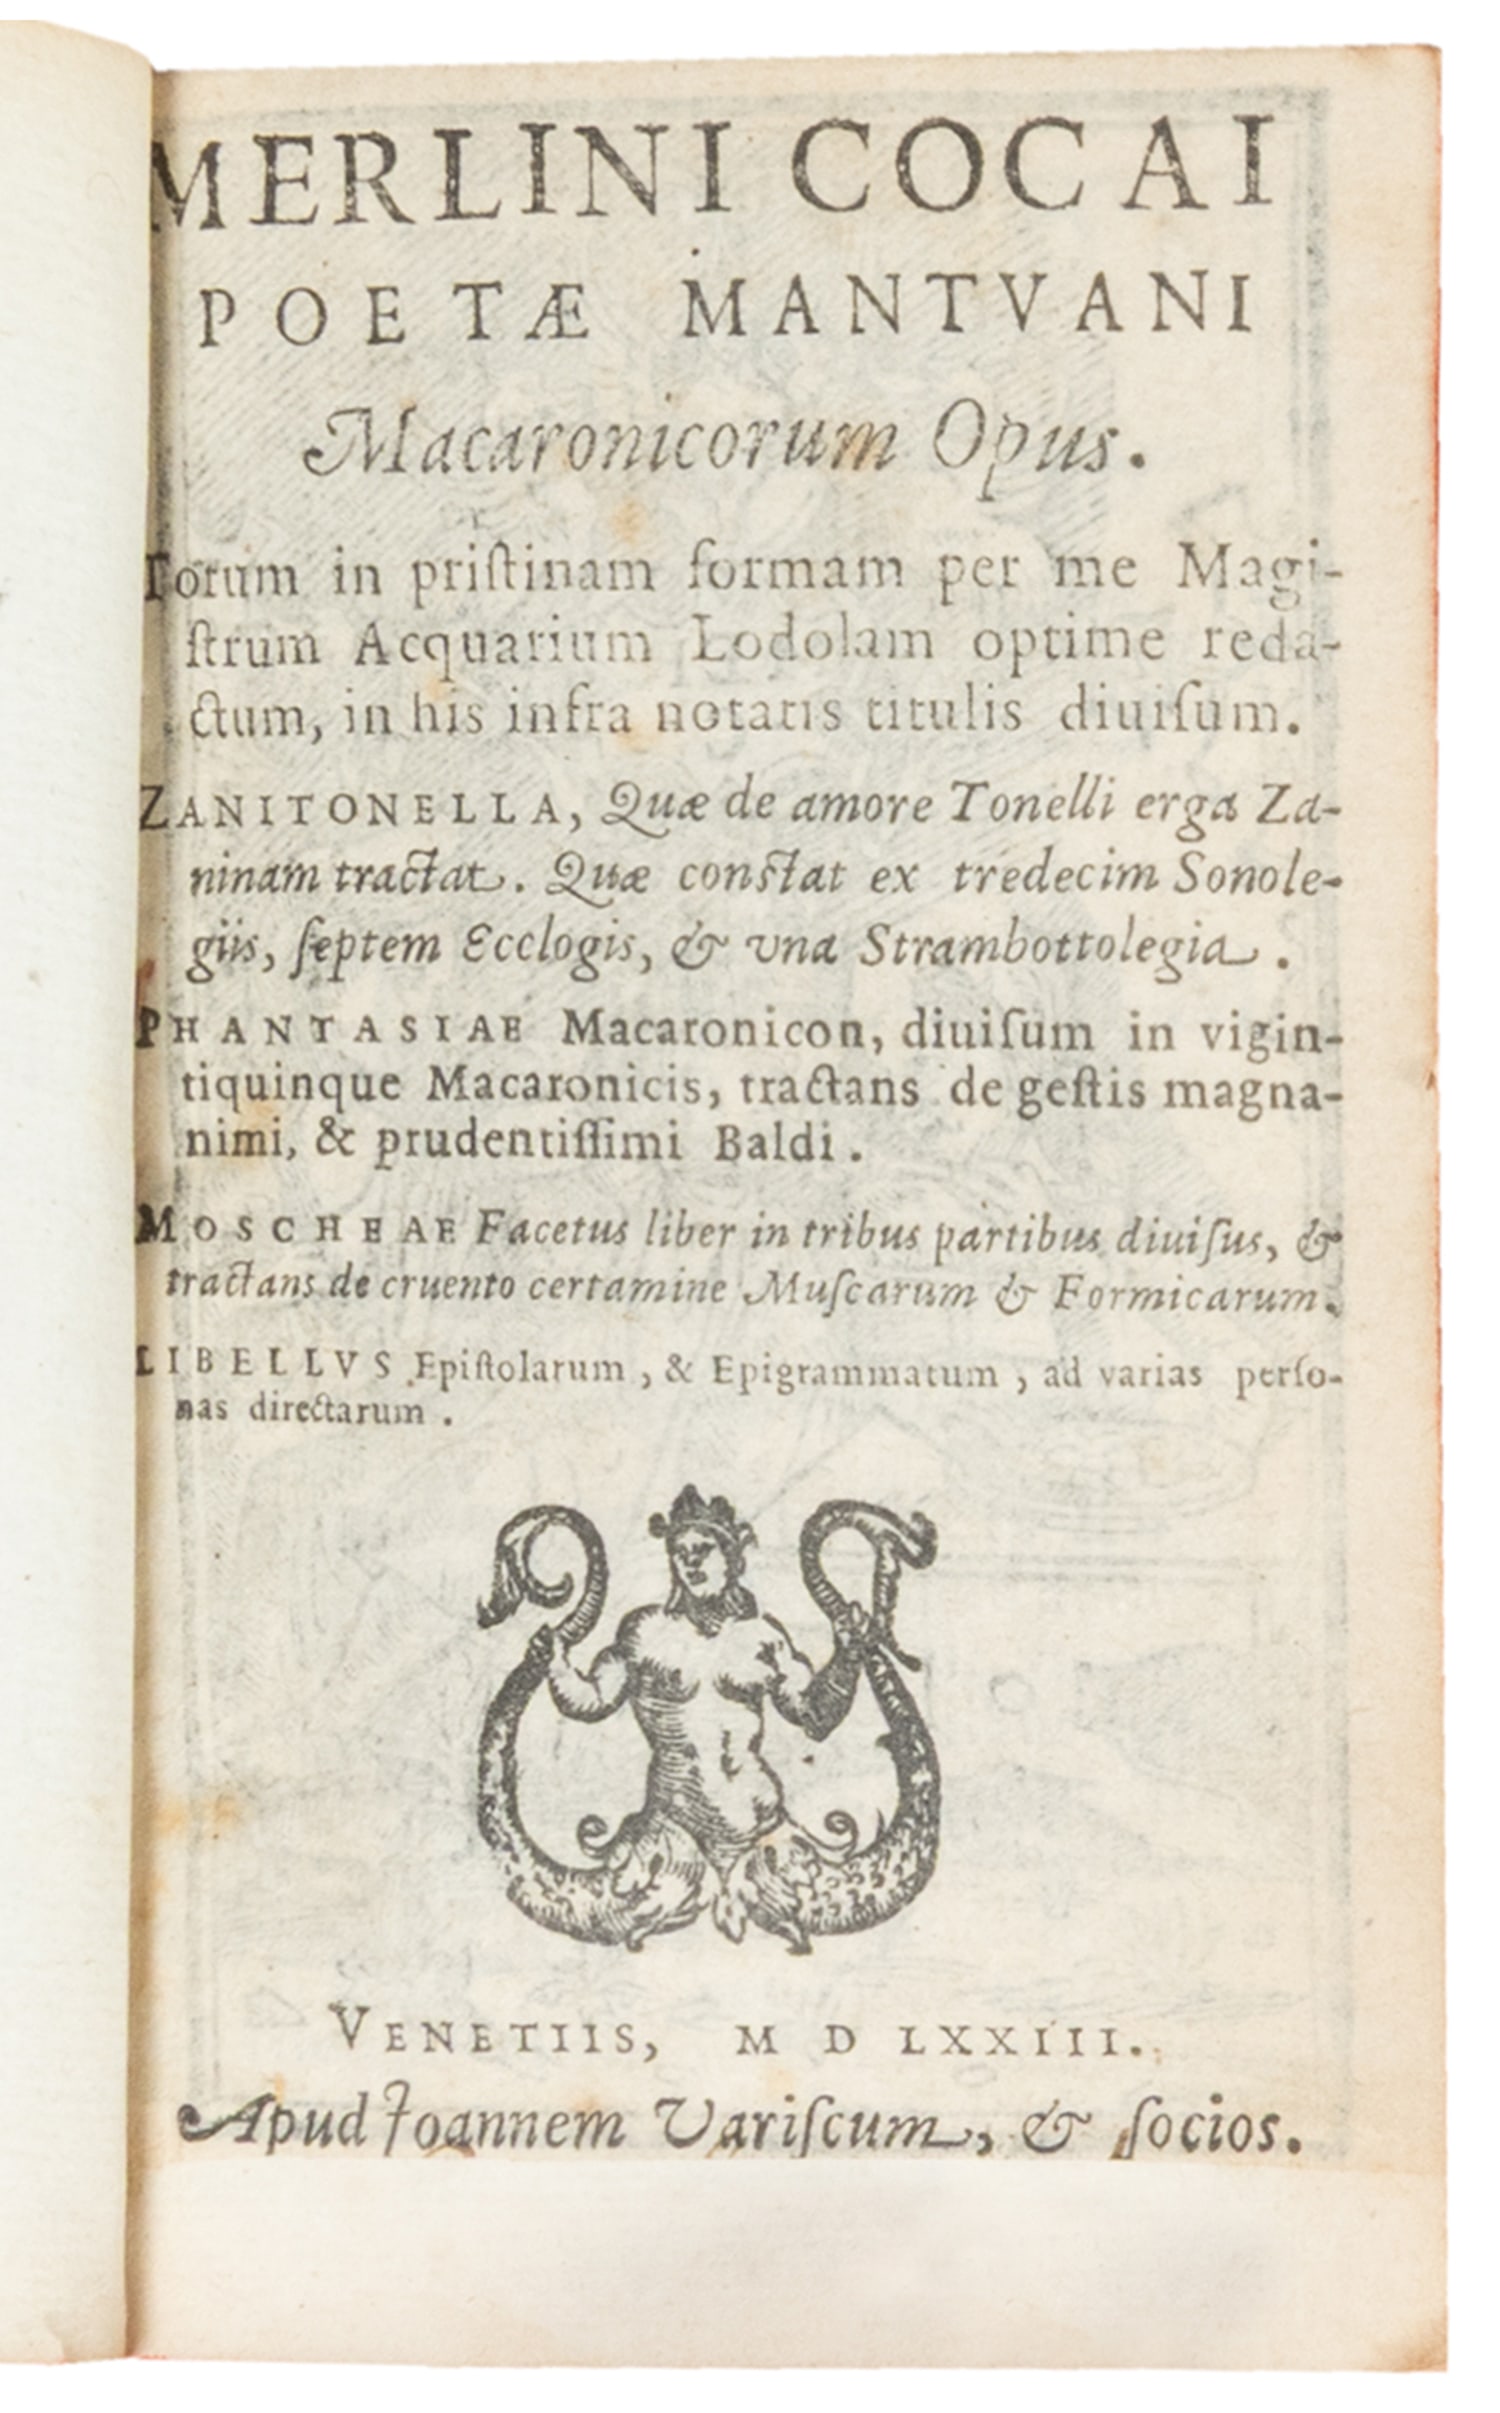 MERLINI COCAI
POETÆ MANTVANI
Macaronicorum Opus.
Totum in priſtinam formam per me Magi-
ſtrum Acquarium Lodolam optime reda-
ctum, in his infra notatis titulis diuiſum.
ZANITONELLA, Quæ de amore Tonelli erga Za-
ninam tractat. Quæ conſtat ex tredecim Sonole-
giis, ſeptem Ecclogis, & vna Strambottolegia.
PHANTASIAE Macaronicon, diuiſum in vigin-
tiquinque Macaronicis, tractans de geſtis magna-
nimi, & prudentiſſimi Baldi.
MOSCHEAE Facetus liber in tribus partibus diuiſus, &
tractans de cruento certamine Muſcarum & Formicarum.
LIBELLVS Epiſtolarum, & Epigrammatum, ad varias perſo-
nas directarum.
VENETIIS, M D LXXIII.
Apud Ioannem Variſcum, & ſocios.